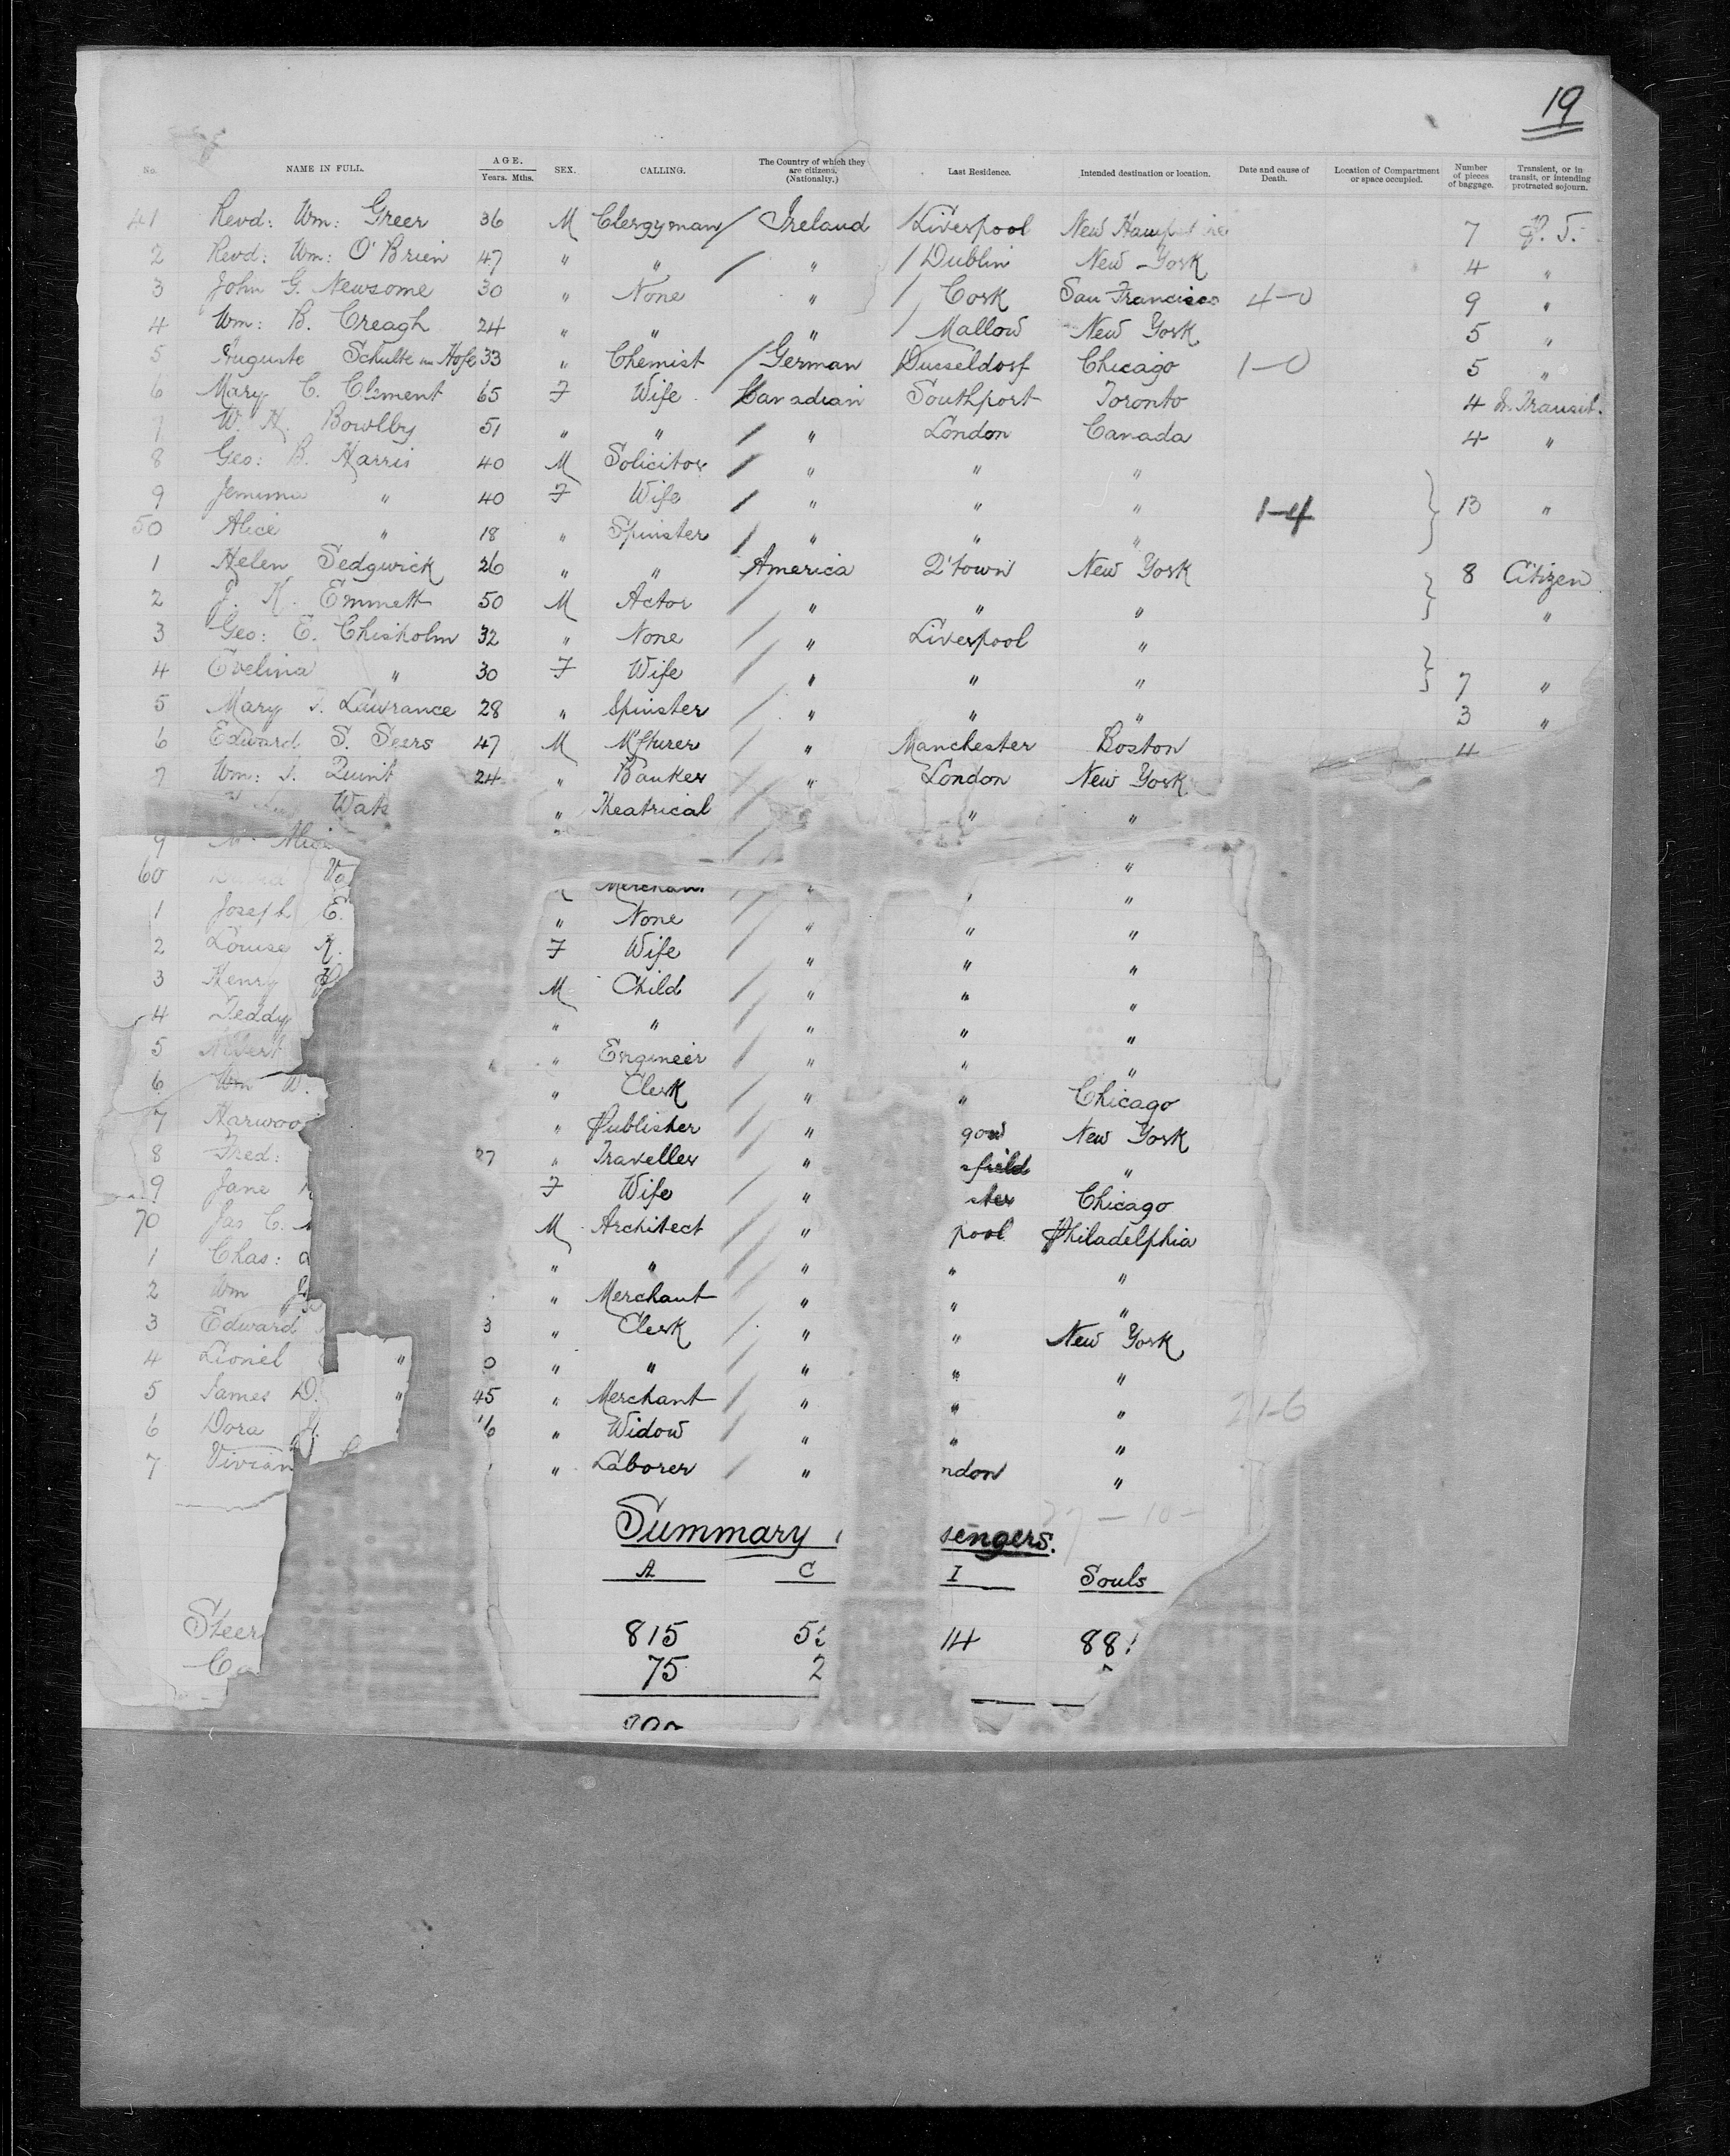 19
No. NAME IN FULL. AGE. Years. Mths. SEX. CALLING. The Country of which they are citizens. (Nationality.) Last Residence. Intended destination or location. Date and cause of Death. Location of Compartment or space occupied. Number of pieces of baggage. Transient, or in transit, or intending protracted sojourn.
41 Revd: Wm: Greer 36 M Clergyman / Ireland / Liverpool New Hampshire 7 P. S.
2 Revd: Wm: O'Brien 47 " " / " / Dublin New York 4 "
3 John G. Newsome 30 " None " / Cork San Francisco 4-0 9 "
4 Wm: B. Creagh 24 " " " / Mallow New York 5 "
5 Auguste Schulte Hofe 33 " Chemist / German / Dusseldorf Chicago 1-0 5 "
6 Mary C. Clement 65 F Wife Canadian Southport Toronto 4 In Transit.
7 W. H. Bowlby 51 " " / " London Canada 4 "
8 Geo: B. Harris 40 M Solicitor / " " "
9 Jemima " 40 F Wife / " " " 1-4 13 "
50 Alice " 18 " Spinster / " " "
1 Helen Sedgwick 26 " " America Q'town New York 8 Citizen
2 J. K. Emmett 50 M Actor / " " " "
3 Geo: E. Chisholm 32 " None / " Liverpool "
4 Evelina " 30 F Wife / " " " 7 "
5 Mary J. Lawrance 28 " Spinster / " " " 3 "
6 Edward S. Seers 47 M M'fturer / " Manchester Boston 4
7 Wm: J. Quint 24 " Banker / " London New York
Wate " Theatrical / " "
9 Alice " / "
60 David Va Merchant / "
1 Joseph E. " None / " " "
2 Louise K. F Wife / " " "
3 Henry M Child / " " "
4 Teddy " " / " " "
5 Albert " Engineer / " " "
6 Wm W. " Clerk / " " Chicago
7 Harwoo " Publisher / " gow New York
8 Fred: 27 " Traveller / " field "
9 Jane F Wife / " ster Chicago
70 Jas C. M Architect / " pool Philadelphia
1 Chas: " " / " " "
2 Wm " Merchant / " " "
3 Edward 3 " Clerk / " " New York
4 Lionel " 0 " " / " " "
5 James D. " 45 " Merchant / " " " 21-6
6 Dora 6 " Widow " " "
7 Vivian " Laborer / " ndon "
Summary sengers.
A C I Souls
Steer 815 5 14 88
Ca 75 2